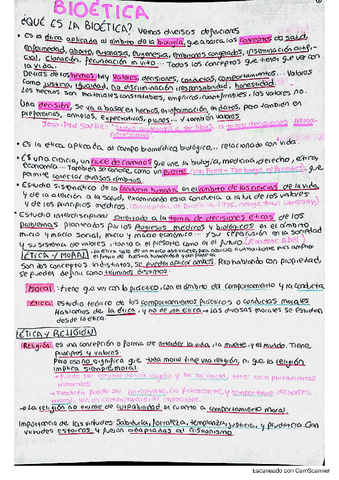 BIOÉTICA
¿QUÉ ES LA BIOÉTICA? Vemos diversas definiciones
• Es la ética aplicada al ámbito de la biología, que abarca los conceptos de salud,
enfermedad, aborto, eutanasia, eugenesia, embriones congelados, inseminación artifi-
cial, clonación, fecundación in vitro... Todos los conceptos que tengan que ver con
la vida.
Detrás de los hechos hay valores, decisiones, conductas, comportamientos... Valores
como justicia, igualdad, no discriminación, responsabilidad, honestidad.
Los hechos son materiales, constatables, empíricos, cuantificables, los valores no.
Una decisión, se va a basar en hechos e información, en datos, pero también en
preferencias, anhelos, expectativas, planes... y también valores
Jean-Paul Sartre:
• Es la ética aplicada al campo biomédico, biológico,... relacionado con vida.
• Es una ciencia, un cruce de caminos que une la biología, medicina, derecho, ética,
economía... También se conoce, como un puente que
permite conectar diversos ámbitos.
• Estudio sistemático de la conducta humana en el ámbito de las ciencias de la vida
y de la atención a la salud, examinando esta conducta a la luz de los valores
y de los principios morales.
• Estudio interdisciplinar orientado a la toma de decisiones éticas de los
problemas planteados por los progresos médicos y biológicos en el ámbito
micro y macro social, micro y macro económico... y su repercusión en la sociedad
y su sistema de valores, tanto en el presente como en el futuro. (Francesc Abel)
ÉTICA Y MORAL
Son dos conceptos indistintos, se pueden aplicar ambos. Pero hablando con propiedad,
se pueden definir como términos distintos
Moral: tiene que ver con la práctica, con el ámbito del comportamiento y la conducta
Ética: estudio teórico de los comportamientos prácticos o conductas morales.
Hablamos de la ética, y no de una ética → Las diversas morales se estudian
desde la ética.
ÉTICA Y RELIGIÓN
Religión: es una concepción o forma de entender la vida, la muerte y el mundo. Tiene
principios y valores.
Pero eso no significa que toda moral tiene una religión, ni que la religión
implica siempre moral.
→ La religión no exime de culpabilidad en cuanto a comportamiento moral.
Importancia de las virtudes: Sabiduría, fortaleza, templanza, justicia, y prudencia. Son
virtudes estoicas y fueron adaptadas al cristianismo.
Escaneado con CamScanner